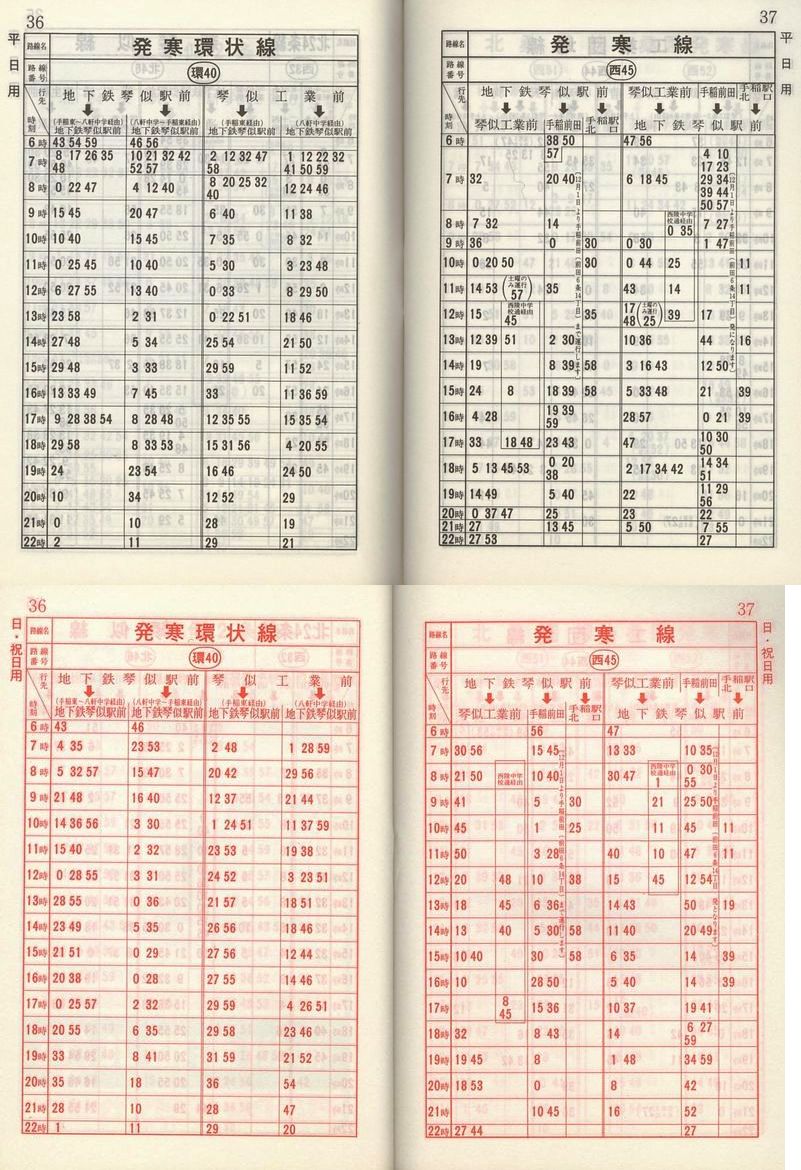 36
平日用
路線名 発寒環状線
路線番号 環40
行先 地下鉄琴似駅前 琴似工業前
時刻 (手稲東〜八軒中学経由) 地下鉄琴似駅前 (八軒中学〜手稲東経由) 地下鉄琴似駅前 (手稲東経由) 地下鉄琴似駅前 (八軒中学経由) 地下鉄琴似駅前
6時 43 54 59 46 56
7時 8 17 26 35 48 10 21 32 42 52 57 2 12 32 47 58 1 12 22 32 41 50 59
8時 0 22 47 4 12 40 8 20 25 32 40 12 24 46
9時 15 45 20 47 6 40 11 38
10時 10 40 15 45 7 35 8 32
11時 0 25 45 10 40 5 30 3 23 48
12時 6 27 55 13 40 0 33 8 29 50
13時 23 58 2 31 0 22 51 18 46
14時 27 48 5 34 25 54 21 50
15時 29 48 3 33 29 59 11 52
16時 13 33 49 7 45 33 11 36 59
17時 9 28 38 54 8 28 48 12 35 55 15 35 54
18時 29 58 8 33 53 15 31 56 4 20 55
19時 24 23 54 16 46 24 50
20時 10 34 12 52 29
21時 0 10 28 19
22時 2 11 29 21
37
平日用
路線名 発寒工業線
路線番号 西45
行先 地下鉄琴似駅前 琴似工業前 手稲前田 手稲駅北口
時刻 琴似工業前 手稲前田 手稲駅北口 地下鉄琴似駅前
6時 38 50 47 56
7時 32 57 20 40 6 18 45 4 10 17 23 29 34 39 44 50 57
8時 7 32 14 西陵中学校通経由 0 35 7 27
9時 36 0 30 0 30 1 47
10時 0 20 50 30 0 44 25 11
11時 14 53 (土曜のみ運行 57) 35 43 14 11
12時 15 西陵中学校通経由 45 35 17 48 (土曜のみ運行 25) 39 17
13時 12 39 51 2 30 10 36 44 16
14時 19 8 39 58 3 16 43 12 50
15時 24 8 18 39 58 5 33 48 21 39
16時 4 28 19 39 59 28 57 0 21 39
17時 33 18 48 23 43 47 10 30 50
18時 5 13 45 53 0 20 38 2 17 34 42 14 34 51
19時 14 49 5 40 22 11 29 56
20時 0 37 47 25 23 22
21時 27 13 45 5 50 7 55
22時 27 53 27
(12月1日より手稲前田(前田6条14丁目)まで運行します)
(12月1日より手稲前田(前田6条14丁目)発になります)
36
日・祝日用
路線名 発寒環状線
路線番号 環40
行先 地下鉄琴似駅前 琴似工業前
時刻 (手稲東〜八軒中学経由) 地下鉄琴似駅前 (八軒中学〜手稲東経由) 地下鉄琴似駅前 (手稲東経由) 地下鉄琴似駅前 (八軒中学経由) 地下鉄琴似駅前
6時 43 46
7時 4 35 23 53 2 48 1 28 59
8時 5 32 57 15 47 20 42 29 56
9時 21 48 16 40 12 37 21 44
10時 14 36 56 3 30 1 24 51 11 37 59
11時 15 40 2 32 23 53 19 38
12時 0 28 55 3 31 24 52 3 23 51
13時 28 55 0 36 21 57 18 51
14時 23 49 5 35 26 56 18 46
15時 21 51 0 29 27 56 12 44
16時 20 38 0 28 27 55 14 46
17時 0 25 57 2 32 29 59 4 26 51
18時 20 55 6 35 29 58 23 46
19時 33 8 41 31 59 21 52
20時 35 18 36 54
21時 28 10 28 47
22時 1 11 29 20
37
日・祝日用
路線名 発寒線
路線番号 西45
行先 地下鉄琴似駅前 琴似工業前 手稲前田 手稲駅北口
時刻 琴似工業前 手稲前田 手稲駅北口 地下鉄琴似駅前
6時 56 47
7時 30 56 15 45 13 33 10 35
8時 21 50 西陵中学校通経由 10 40 30 47 西陵中学校通経由 1 0 30 55
9時 41 5 30 21 25 50
10時 45 1 25 11 45 11
11時 50 3 28 40 10 47 11
12時 20 48 10 38 15 45 12 54
13時 18 45 6 36 14 43 50 19
14時 13 40 5 30 58 11 40 20 49
15時 10 40 30 58 6 35 14 39
16時 10 28 50 5 40 14 39
17時 8 45 15 36 10 37 19 41
18時 32 8 43 14 6 27 59
19時 19 45 8 1 48 34 59
20時 18 53 0 8 42
21時 10 45 16 52
22時 27 44 27
(12月1日より手稲前田(前田6条14丁目)まで運行します)
(12月1日より手稲前田(前田6条14丁目)発となります)